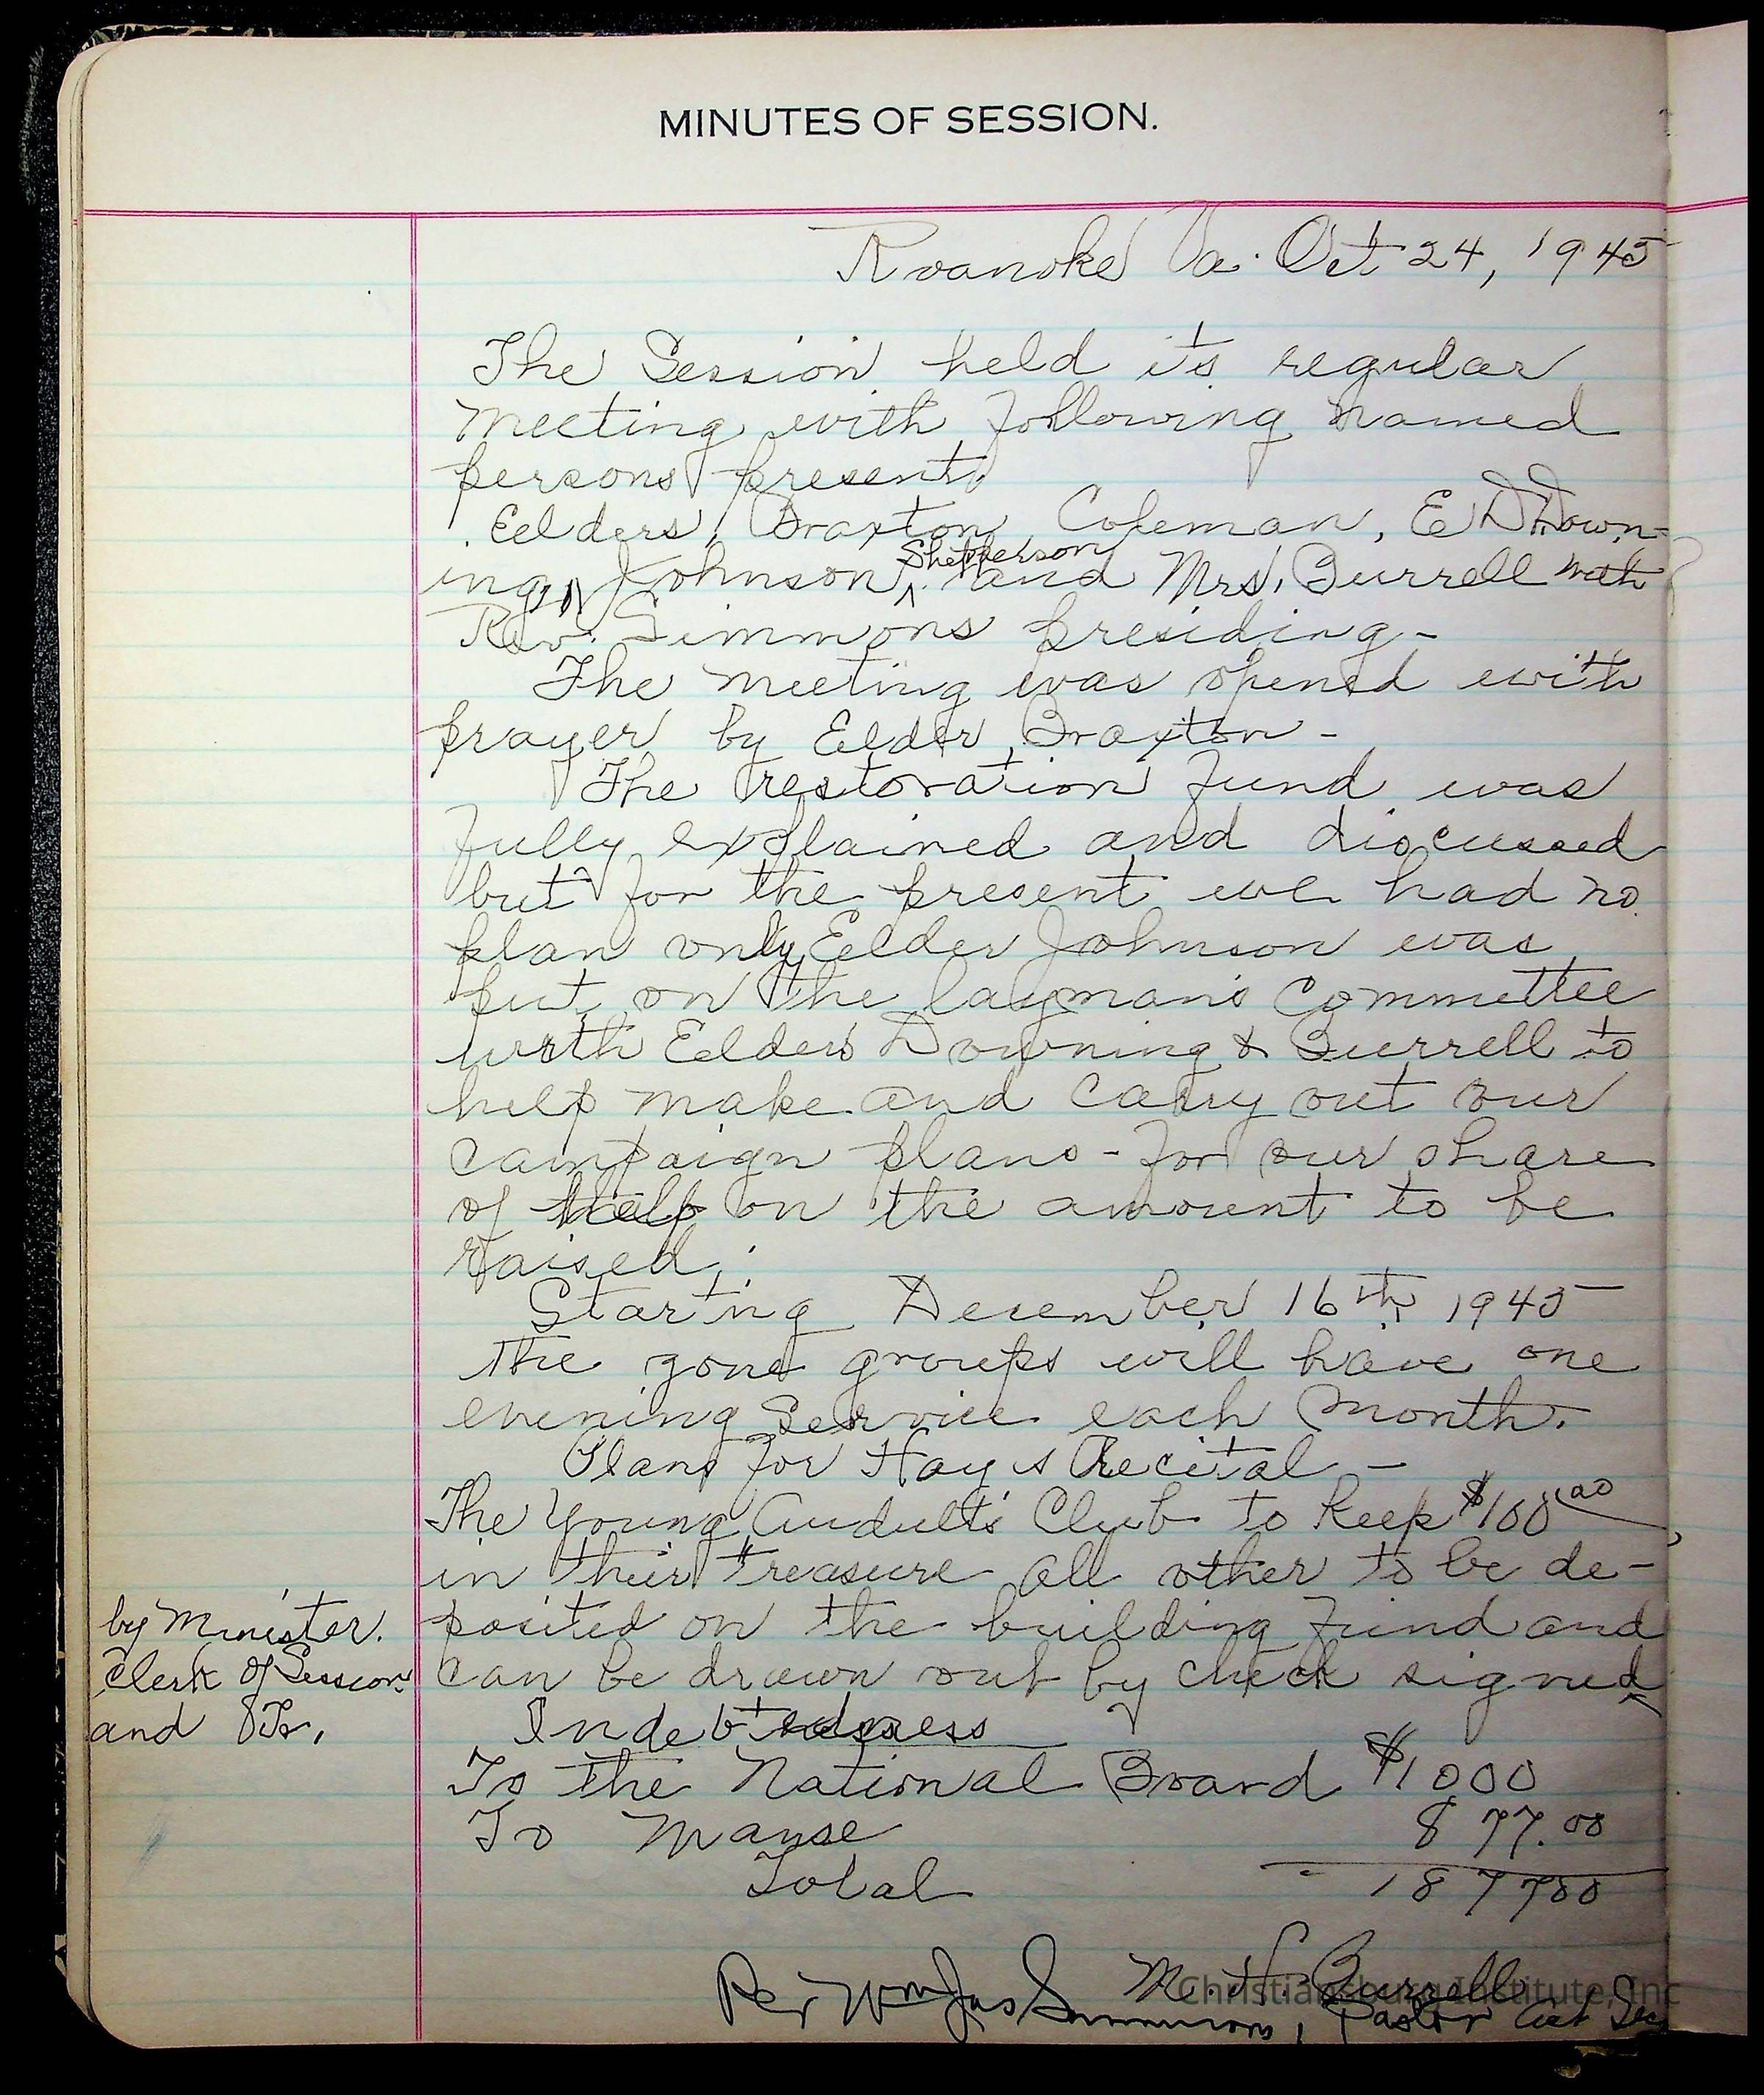 MINUTES OF SESSION.
Roanoke Va. Oct 24, 1945
The Session held its regular
meeting with following named
persons present.
Eelders, Braxton, Coleman, E D Down-
ing, Johnson, Shepperson and Mrs. Burrell with
Rev. Simmons presiding -
The meeting was opened with
prayer by Eelder Braxton -
The restoration fund was
fully explained and discussed
but for the present we had no
plan only Eelder Johnson was
put on the layman's Committee
with Eelders Downing & Burrell to
help make and carry out our
campaign plans - for our share
of help on the amount to be
raised.
Starting December 16th 1945
the zone groups will have one
evening Service each month.
Plans for Hays Recital -
The Young Audults Club to keep $100.00
in their treasure all other to be de-
posited on the building fund and
can be drawn out by check signed
by Minister.
Clerk of Session
and Tr.
Indebtedness
To the National Board $1000
To Manse 877.00
Total 187700
M. H. Burrell
Rev Wm Jas Simmons, Pastor
Christiansburg Institute, Inc